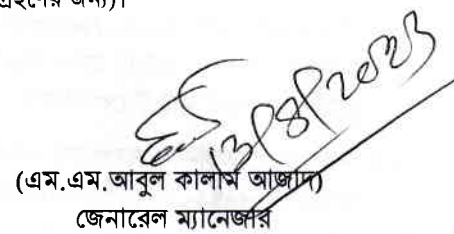 জন্য)।
13/8/2023
(এম.এম.আবুল কালাম আজাদ)
জেনারেল ম্যানেজার